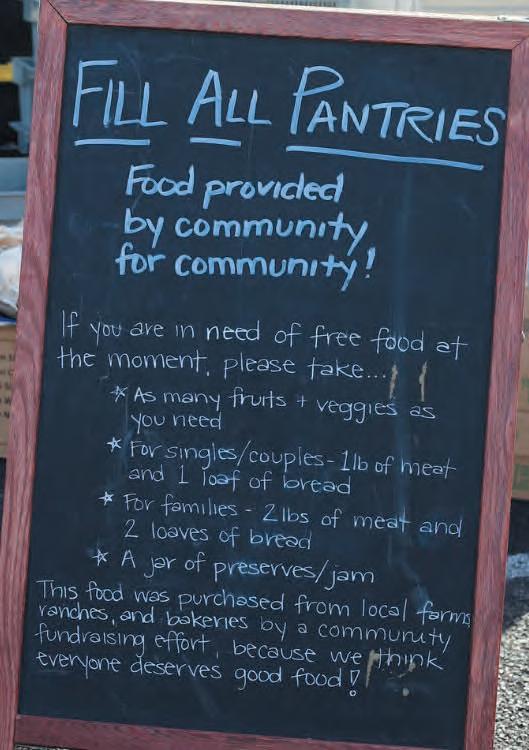 FILL ALL PANTRIES
Food provided
by community
for community!
If you are in need of free food at
the moment, please take...
* As many fruits + veggies as
you need
* For singles/couples - 1lb of meat
and 1 loaf of bread
* For families - 2lbs of meat and
2 loaves of bread
* A jar of preserves/jam
This food was purchased from local farms,
ranches, and bakeries by a community
fundraising effort, because we think
everyone deserves good food!